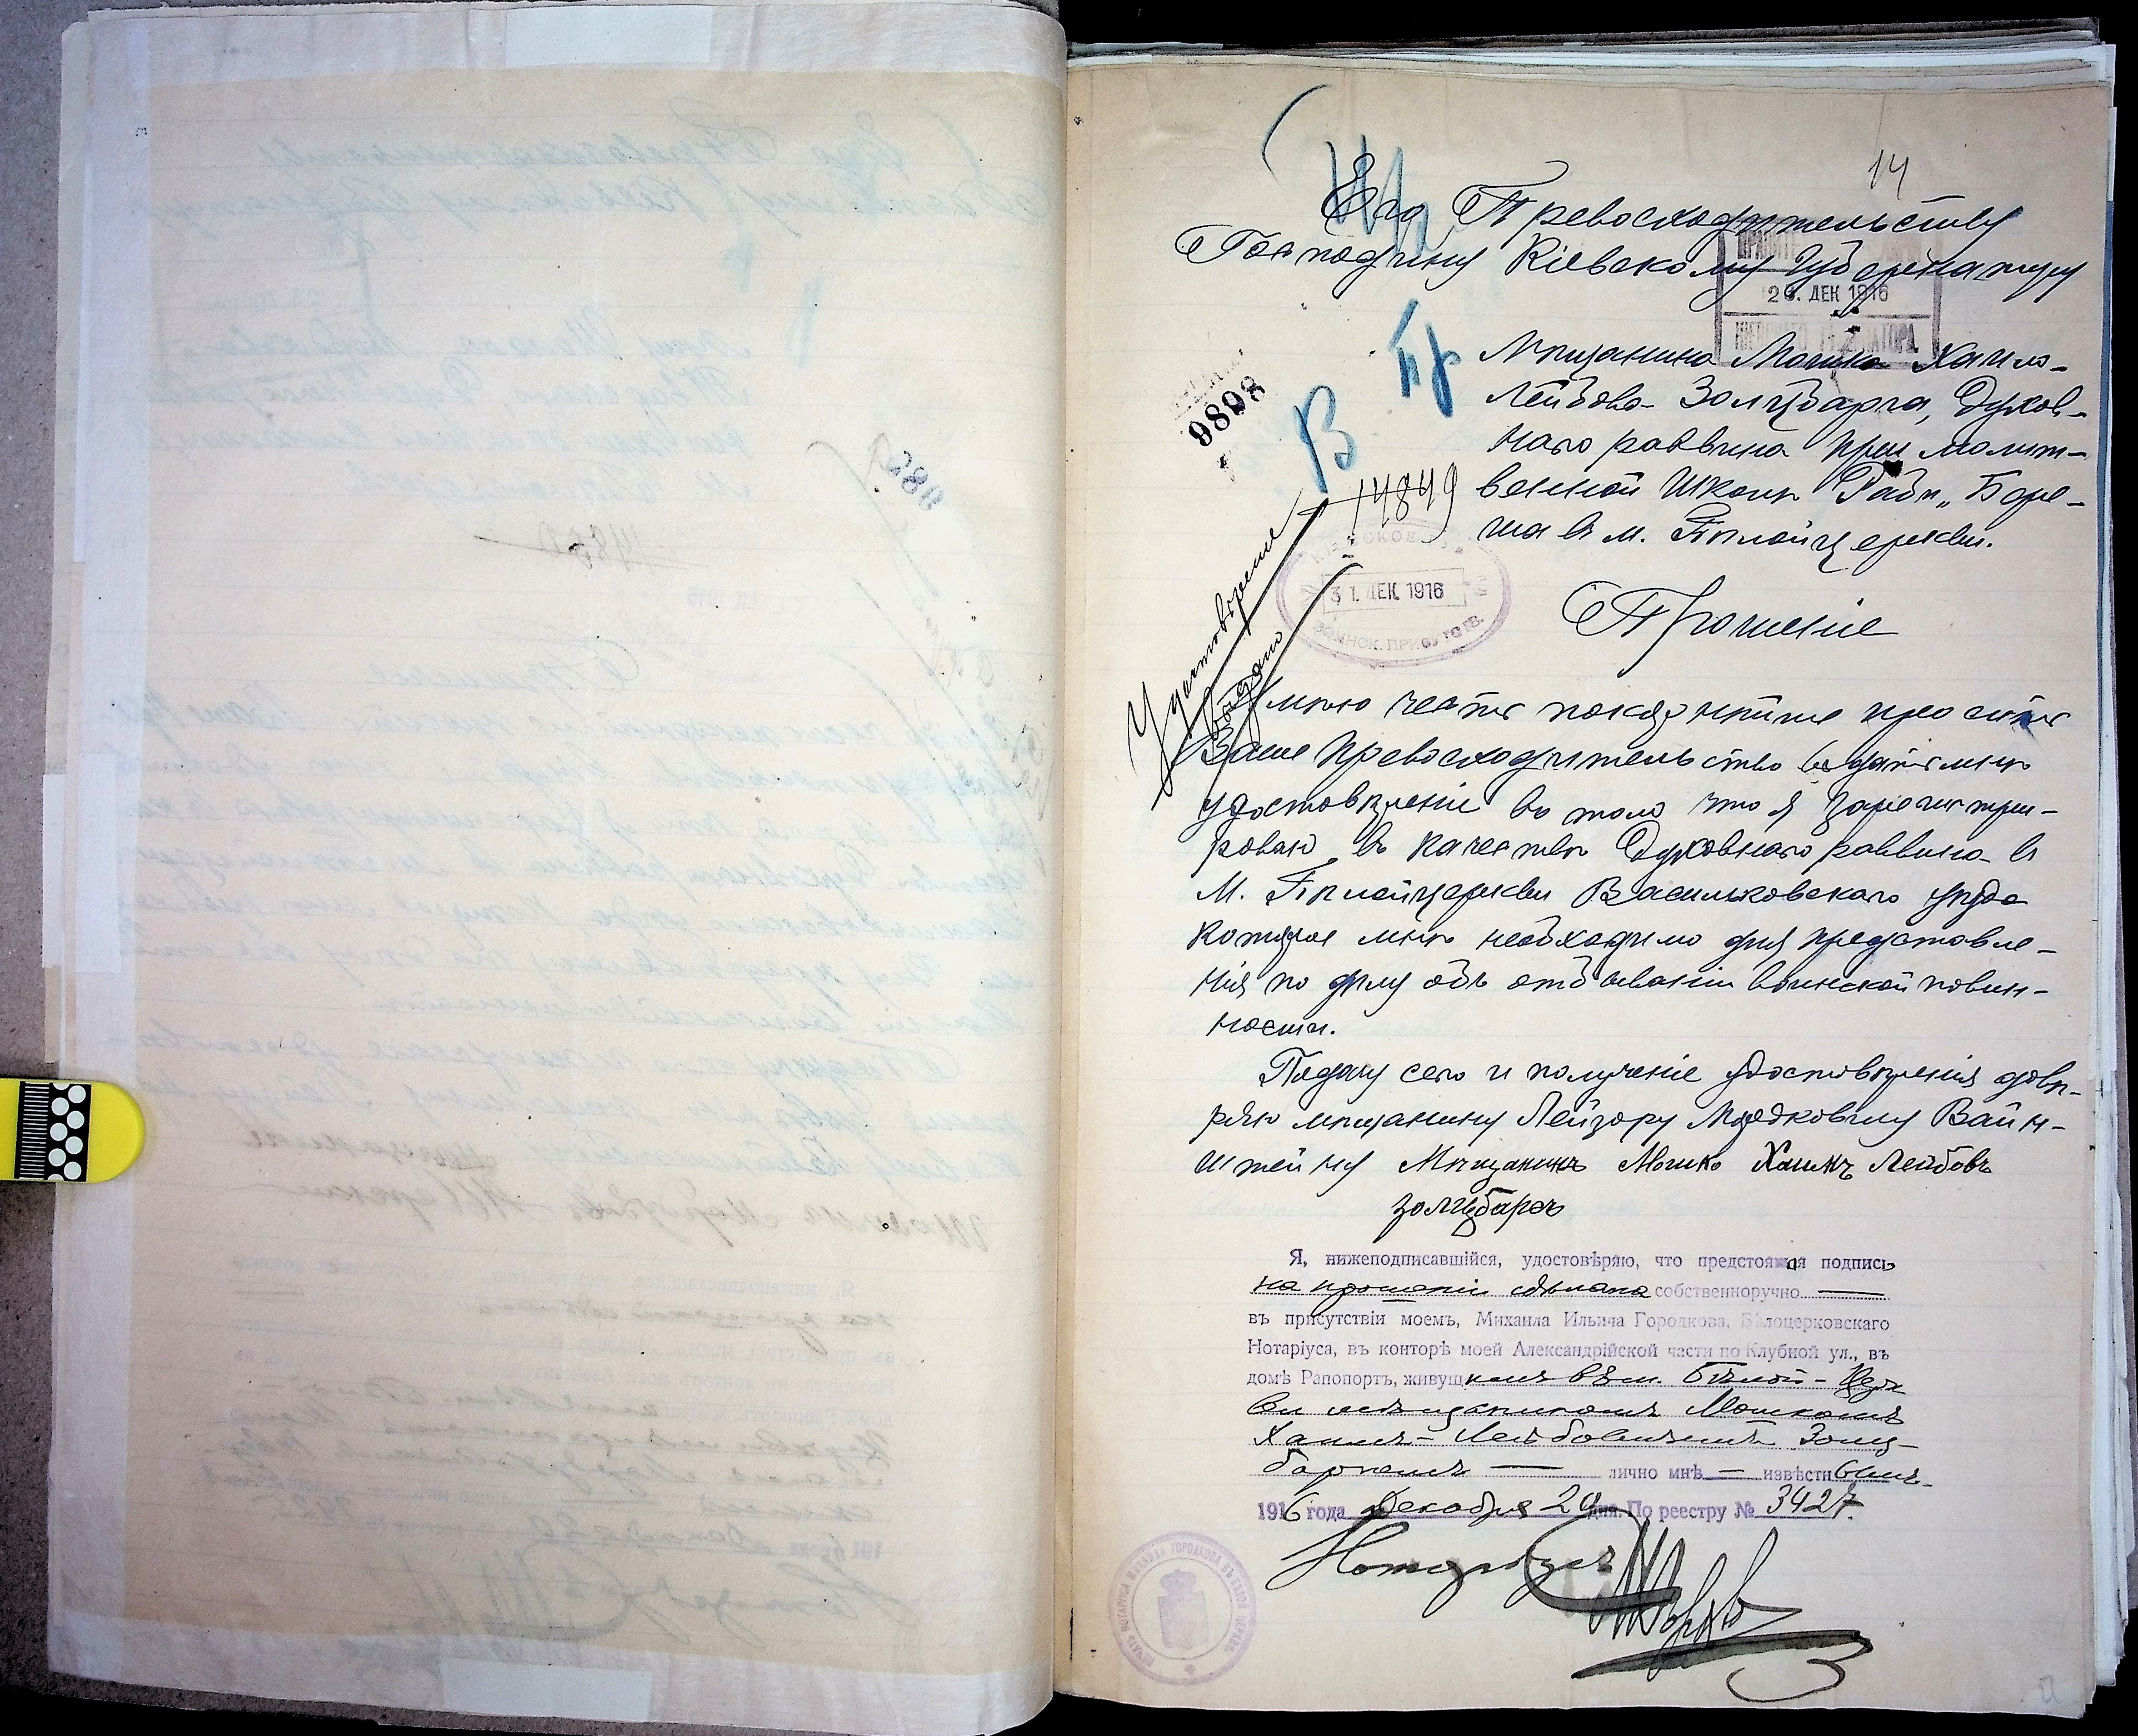 14
Его Превосходительству
Господину Кіевскому Губернатору
20. ДЕК 1916
Мѣщанина Мошка Хаимо-
Лейбова Золцбарга, Духов-
наго раввина при молит-
венной школѣ Раби „Боре-
ша въ м. Бѣлойцеркви.
9898
В
Пр
14849
31. ДЕК. 1916
ВОИНСК. ПРИСУТСТВ.
Удостовѣреніе
выдано
Прошеніе
Имѣю честь покорнѣйше просить
Ваше Превосходительство выдать мнѣ
удостовѣреніе въ томъ что я зарегистри-
рованъ въ качествѣ Духовнаго раввина въ
М. Бѣлойцеркви Васильковскаго уѣзда
которое мнѣ необходимо для представле-
нія по дѣлу объ отбываніи воинской повин-
ности.
Подачу сего и полученіе удостовѣренія довѣ-
ряю мѣщанину Лейзору Мордковичу Вайн-
штейну Мѣщанинъ Мошко Хаимъ Лейбовъ
Золцбаргъ
Я, нижеподписавшійся, удостовѣряю, что предстоящая подпись
на прошеніи сдѣлана собственноручно
въ присутствіи моемъ, Михаила Ильича Городкова, Бѣлоцерковскаго
Нотаріуса, въ конторѣ моей Александрійской части по Клубной ул., въ
домѣ Рапопорть, живущимъ въ м. Бѣлой-Церк
ви мѣщаниномъ Мошкомъ
Хаимъ-Лейбовичемъ Золц-
баргомъ — лично мнѣ — извѣстнымъ.
1916 года Декабря 20 дня. По реестру № 3427.
Нотаріусъ
ПЕЧАТЬ НОТАРІУСА МИХАИЛА ГОРОДКОВА ВЪ БѢЛОЙ ЦЕРКВИ